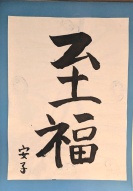 至福
安子